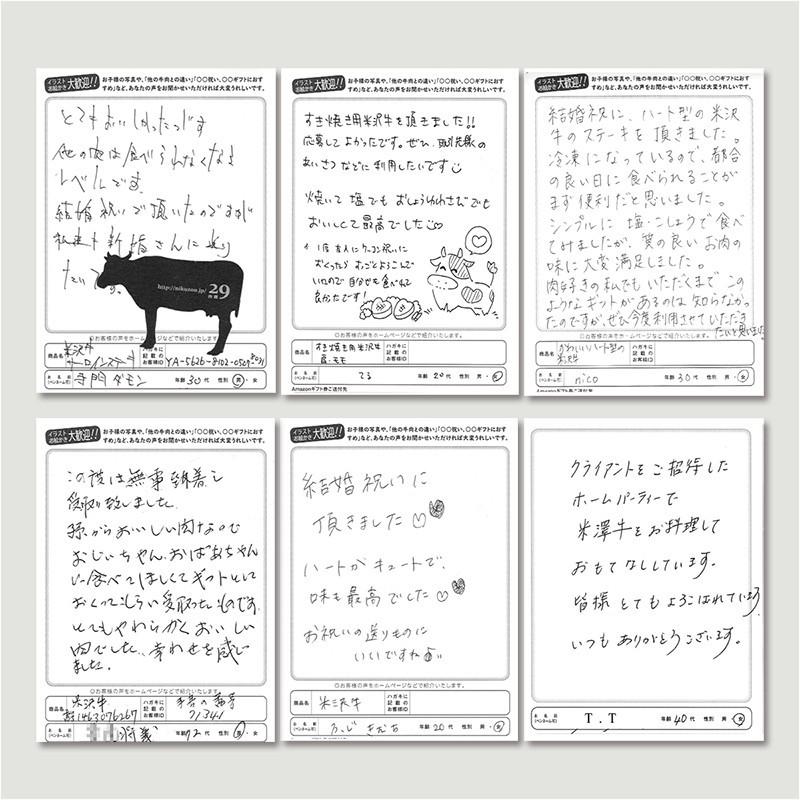 イラスト
お絵かき 大歓迎!!
お子様の写真や、「他の牛肉との違い」「〇〇祝い、〇〇ギフトにおす
すめ」など、あなたの声をお聞かせいただければ大変うれしいです。
とてもおいしかったです
他の肉は食べられなくなる
レベルです。
結婚祝いで頂いたのですが
新婚さんに送り
たいです。
http://nikuzou.jp/
29
〇お客様の声をホームページなどで紹介いたします。
商品名 米沢牛
サーロインステーキ
ハガキに
記載の
お客様ID
YA-5626-8102-0529-8031
お名前
(ペンネーム可)
寺門ダモン 年齢 30代 性別 男・女
イラスト
お絵かき 大歓迎!!
お子様の写真や、「他の牛肉との違い」「〇〇祝い、〇〇ギフトにおす
すめ」など、あなたの声をお聞かせいただければ大変うれしいです。
すき焼き用米沢牛を頂きました!!
応募してよかったです。ぜひ、取引先様の
あいさつなどに利用したいです
焼いて塩でもおしょうゆわさびでも
おいしくて最高でした
おくったら すっごとよろこんで
いたので自分も食べれて
良かったです!
〇お客様の声をホームページなどで紹介いたします。
商品名 すき焼き用米沢牛
肩・モモ
ハガキに
記載の
お客様ID
お名前
(ペンネーム可)
てる 年齢 20代 性別 男・女
Amazonギフト券ご送付先
イラスト
お絵かき 大歓迎!!
お子様の写真や、「他の牛肉との違い」「〇〇祝い、〇〇ギフトにおす
すめ」など、あなたの声をお聞かせいただければ大変うれしいです。
結婚祝に、ハート型の米沢
牛のステーキを頂きました。
冷凍になっているので、都合
の良い日に食べられることが
まず便利だと思いました。
シンプルに塩・こしょうで食べ
てみましたが、質の良いお肉の
味に大変満足しました。
肉好きの私でもいただくまでこの
ようなギフトがあるのは知らなかっ
たのですが、ぜひ今度利用させていただき
たいと思いました
〇お客様の声をホームページなどで紹介いたします。
商品名 かわいいハート型の
米沢牛
ハガキに
記載の
お客様ID
お名前
(ペンネーム可)
nico 年齢 30代 性別 男・女
イラスト
お絵かき 大歓迎!!
お子様の写真や、「他の牛肉との違い」「〇〇祝い、〇〇ギフトにおす
すめ」など、あなたの声をお聞かせいただければ大変うれしいです。
この度は無事到着し
受取り致しました。
孫からおいしい肉なので
おじいちゃん、おばあちゃん
に食べてほしくてギフトとして
おくってもらい受取ったものです。
とてもやわらかくおいしい
肉でした。幸わせを感じ
ました。
〇お客様の声をホームページなどで紹介いたします。
商品名 米沢牛
ハガキに
記載の
お客様ID
71341
お名前
(ペンネーム可)
年齢 72代 性別 男・女
結婚祝いに
頂きました
ハートがキュートで、
味も最高でした
お祝いの送りものに
いいですね
〇お客様の声をホームページなどで紹介いたします。
商品名 米沢牛
ハガキに
記載の
お客様ID
お名前
(ペンネーム可)
年齢 20代 性別 男・女
クライアントをご招待した
ホームパーティーで
米澤牛をお料理して
おもてなししています。
皆様とてもよろこばれています
いつもありがとうございます。
お名前
(ペンネーム可)
T.T 年齢 40代 性別 男・女